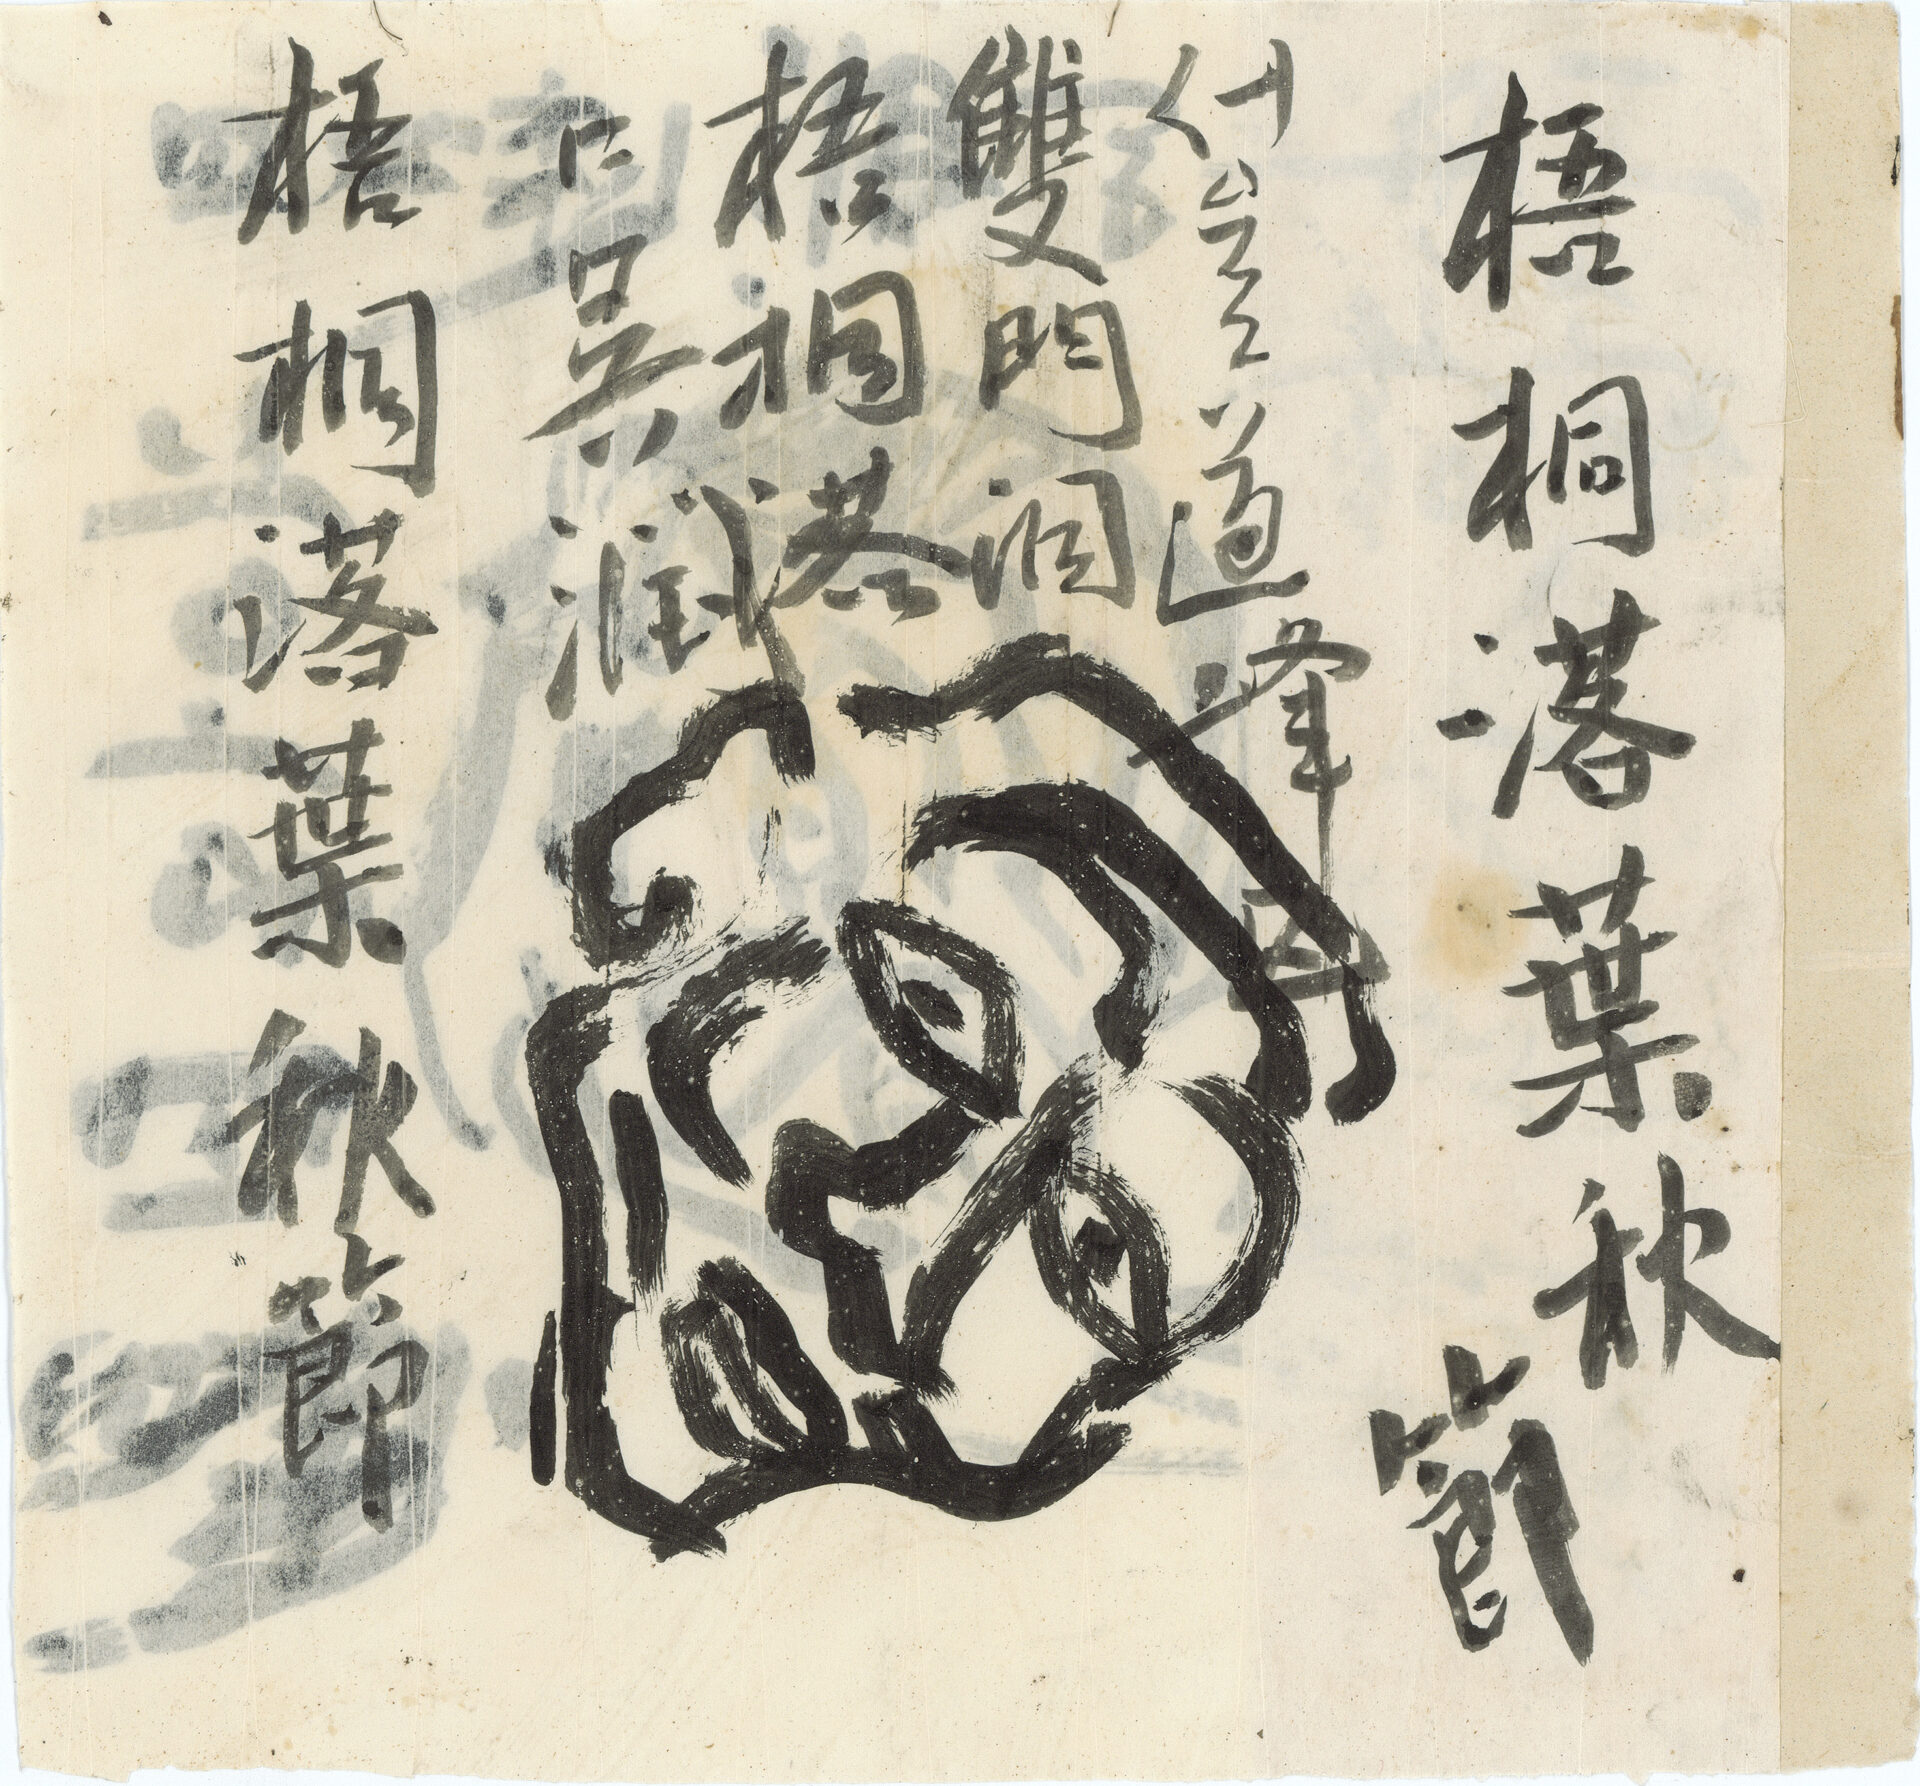 梧桐落葉秋節
서울 道峰區
雙門洞
梧桐落
吳潤
梧桐落葉秋節